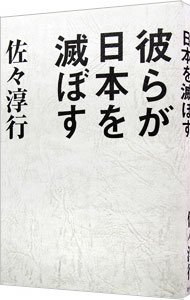 彼らが
日本を
滅ぼす
佐々淳行
日本を滅ぼす